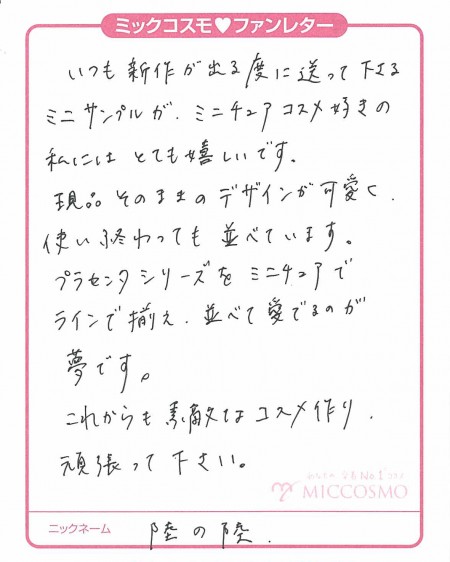 ミックコスモ♥ファンレター
いつも新作が出る度に送って下さる
ミニサンプルが、ミニチュアコスメ好きの
私にはとても嬉しいです。
現品そのままのデザインが可愛く、
使い終わっても並べています。
プラセンタシリーズをミニチュアで
ラインで揃え、並べて愛でるのが
夢です。
これからも素敵なコスメ作り、
頑張って下さい。
みんなの 定番No.1コスメ
MICCOSMO
ニックネーム 陸の陸.